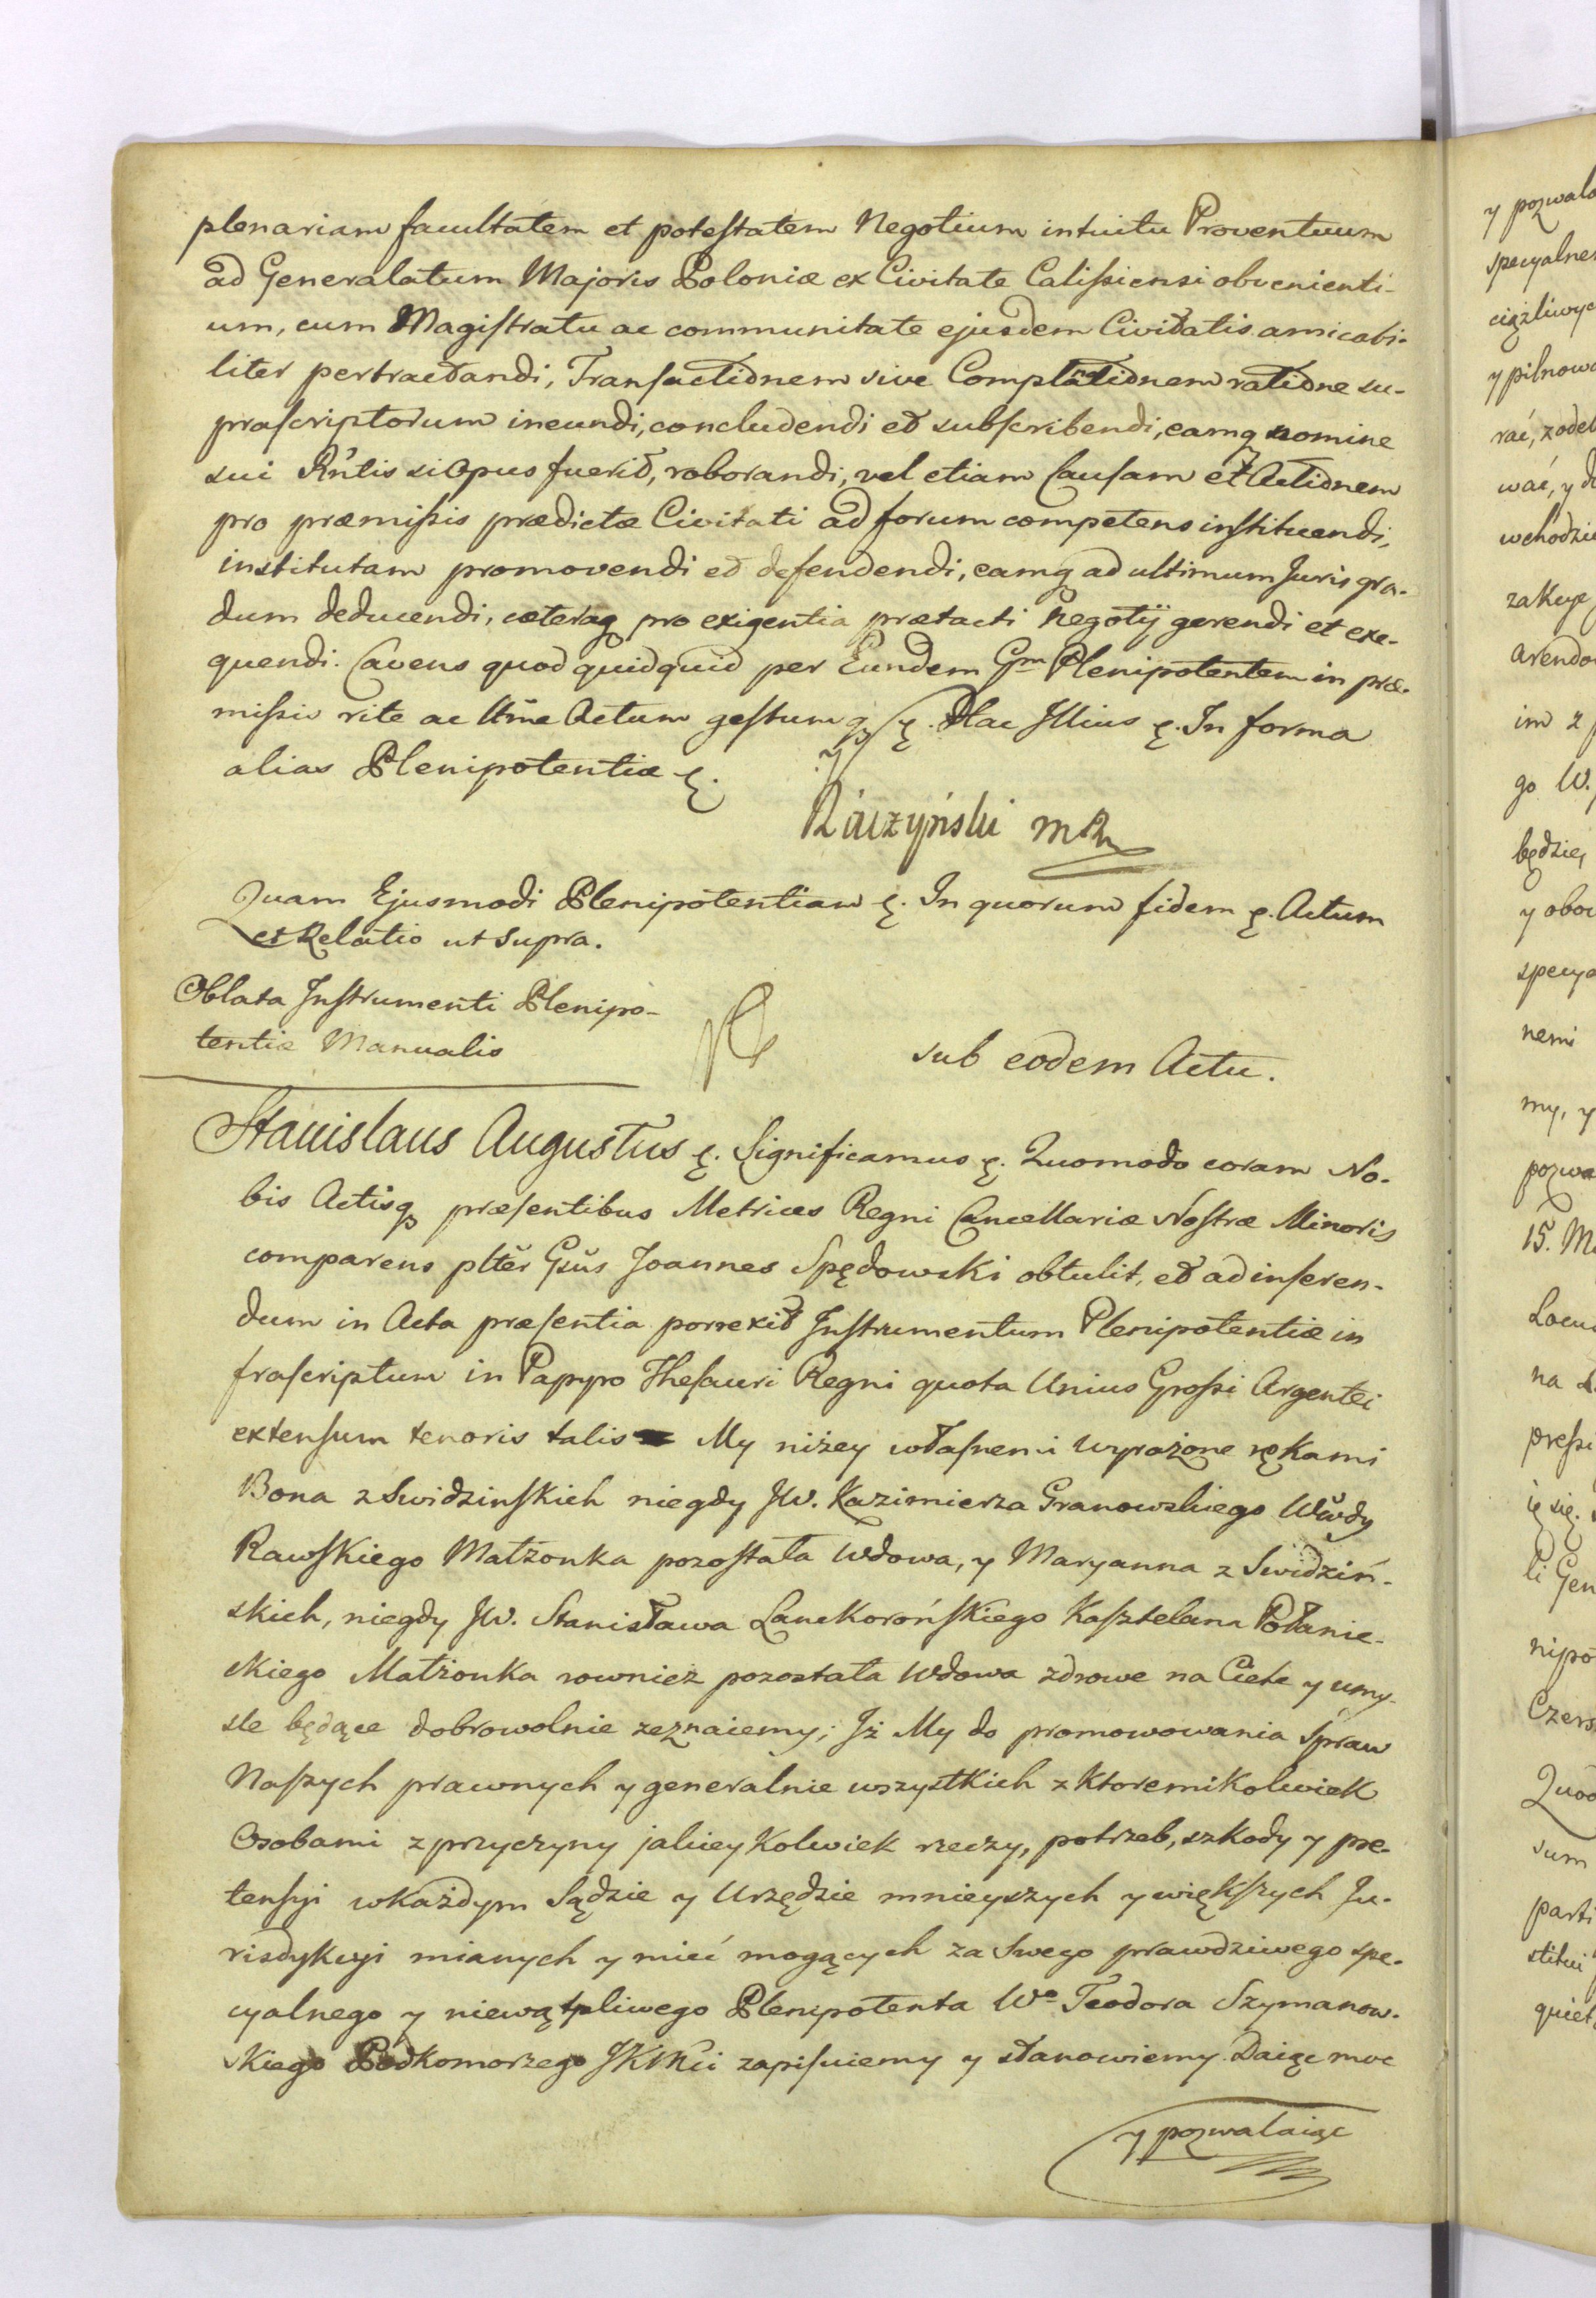 plenariam facultatem et potestatem Negotium intuitu Proventuum
ad Generalatum Majoris Poloniæ ex Civitate Calissiensi obvenienti-
um, cum Magistratu ac communitate ejusdem Civitatis amicabi-
liter pertractandi, Transactionem sive Complanationem ratione su-
prascriptorum ineundi, concludendi et subscribendi, eamq nomine
sui Rñtis si Opus fuerit, roborandi, vel etiam Causam et Actionem
pro præmissis prædictæ Civitati ad forum competens instituendi,
institutam promovendi et defendendi, eamq ad ultimum Juris gra-
dum deducendi, cæteraq pro exigentia prætacti Negotij gerendi et exe-
quendi. Cavens quod quidquid per Eundem Gm Plenipotentem in præ-
missis rite ac ltme Actum gestum q3 ę. Hac Illius ę. In forma
alias Plenipotentiæ ę.
Raczyński mp
Quam Ejusmodi Plenipotentiam ę. In quorum fidem ę. Actum
et Relatio ut supra.
Oblata Instrumenti Plenipo-
tentiæ Manualis
sub eodem Actu.
Stanislaus Augustus ę. Significamus ę. Quomodo coram No-
bis Actisq præsentibus Metrices Regni Cancellariæ Nostræ Minoris
comparens pltěr Gsus Joannes Spędowski obtulit, et ad inseren-
dum in Acta præsentia porrexit Instrumentum Plenipotentiæ in
frascriptum in Papyro Thesauri Regni quota Unius Grossi Argentei
extensum tenoris talis My niżey własnemi wyrażone rękami
Bona z Swidzinskich niegdy JW. Kazimierza Granowskiego Wwdy
Rawskiego Małżonka pozostała Wdowa, y Maryanna z Swidziń-
skich, niegdy JW. Stanisława Lanckorońskiego Kasztelana Połanie-
ckiego Małżonka rownież pozostała Wdowa zdrowe na Ciele y umy-
sle będące dobrowolnie zeznaiemy; Jż My do promowowania Spraw
Naszych prawnych y generalnie wszystkich z Ktoremikolwiek
Osobami z przyczyny jakiey Kolwiek rzeczy, potrzeb, szkody y pre-
tensyi w każdym Sądzie y Urzędzie mnieyszych y większych Ju-
risdykcyi mianych y mieć mogących za Swego prawdziwego spe-
cyalnego y niewątpliwego Plenipotenta Wo Teodora Szymanow-
skiego Podkomorzego JKMci zapisuiemy y stanowiemy Daiąc moc
y pozwalaiąc